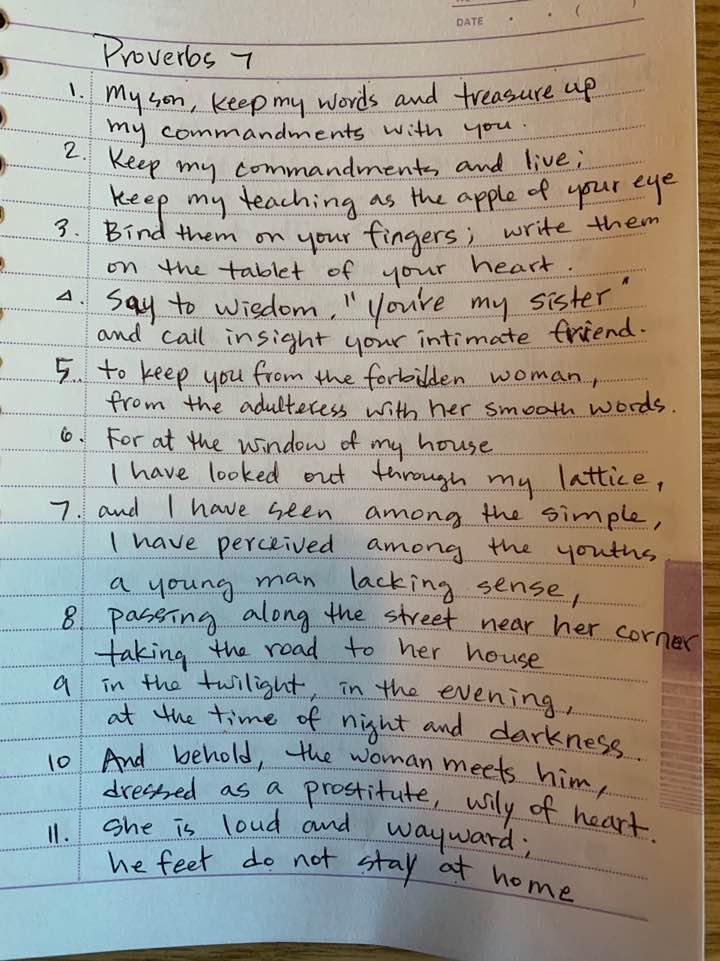 DATE . . ( )
Proverbs 7
1. My son, keep my words and treasure up
my commandments with you.
2. Keep my commandments and live;
keep my teaching as the apple of your eye
3. Bind them on your fingers; write them
on the tablet of your heart.
4. Say to wisdom, "You're my sister"
and call insight your intimate friend.
5. to keep you from the forbidden woman,
from the adulteress with her smooth words.
6. For at the window of my house
I have looked out through my lattice,
7. and I have seen among the simple,
I have perceived among the youths
a young man lacking sense,
8. passing along the street near her corner
taking the road to her house
9 in the twilight, in the evening,
at the time of night and darkness.
10 And behold, the woman meets him,
dressed as a prostitute, wily of heart.
11. She is loud and wayward;
he feet do not stay at home